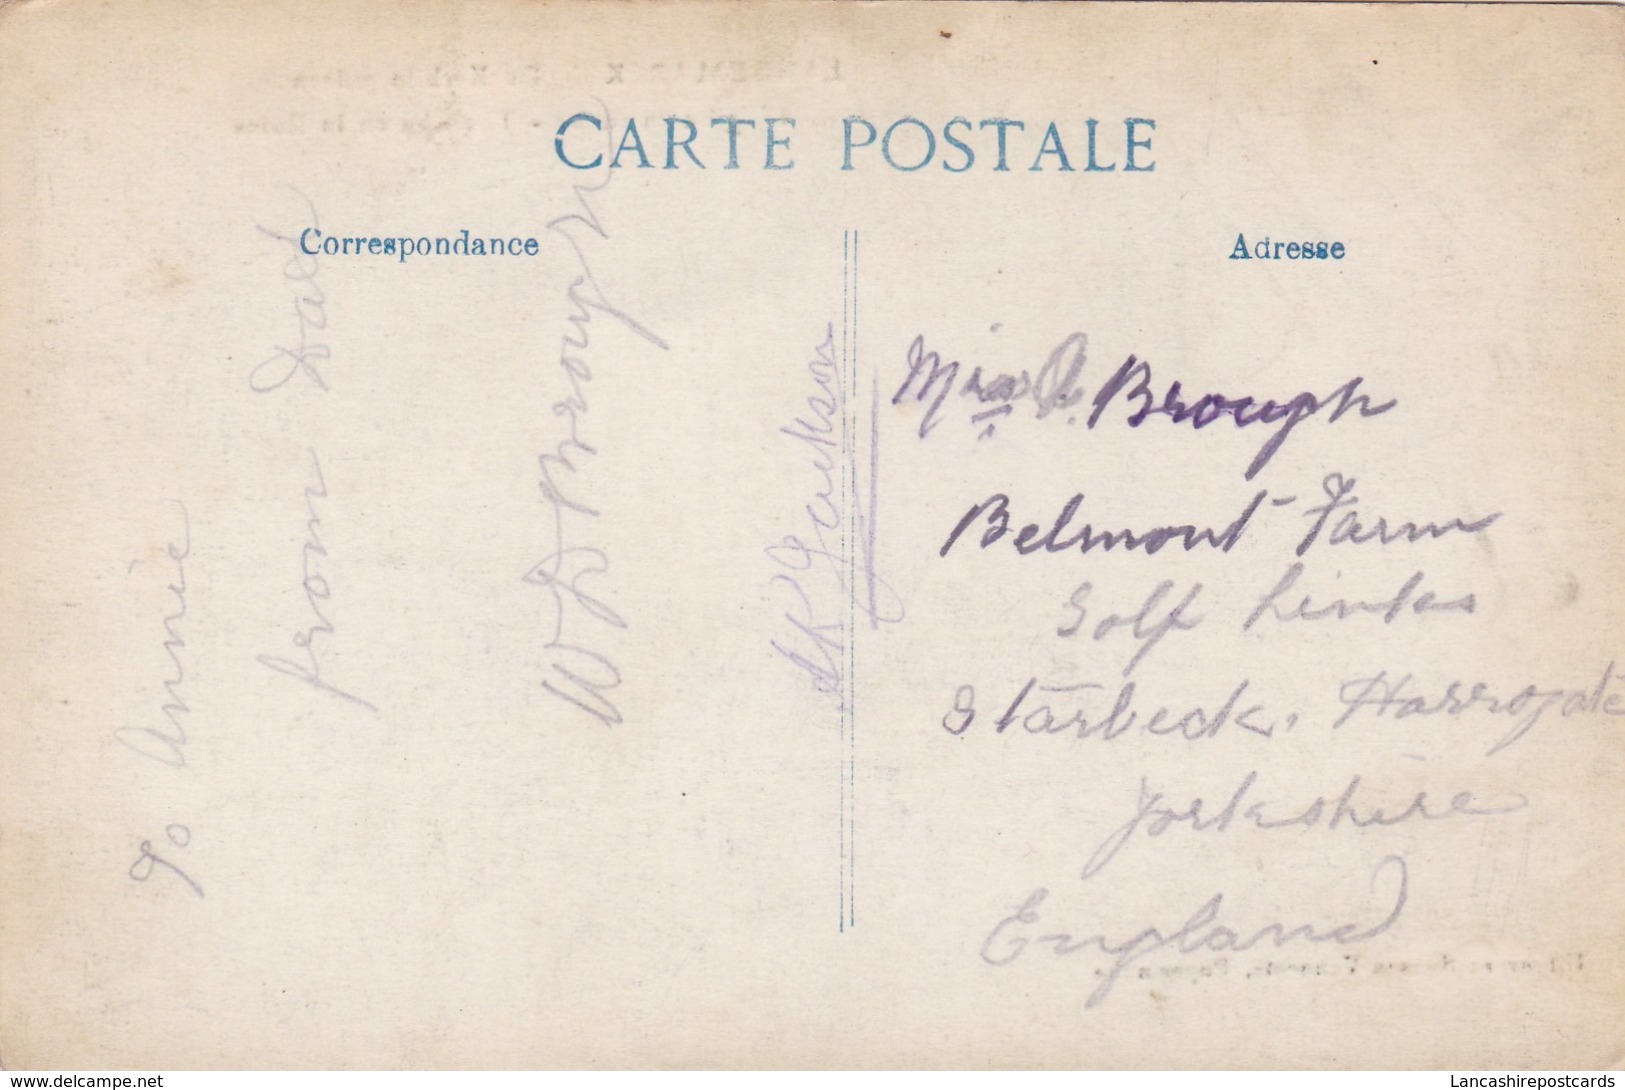 CARTE POSTALE
Correspondance
Adresse
To Annie
from Dad
W J Brough
Jackson
Brough
Belmont Farm
Golf Links
Starbeck. Harrogate
Yorkshire
England
www.delcampe.net
Lancashirepostcards